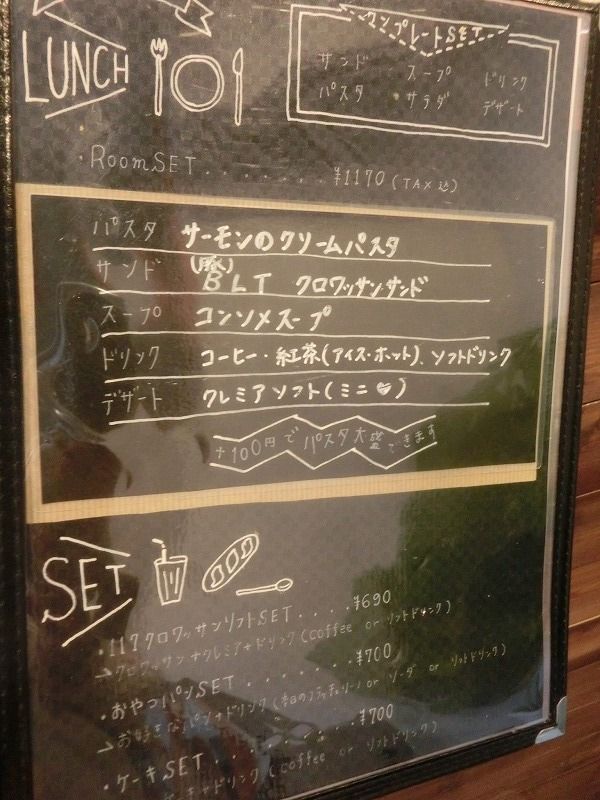 LUNCH
ワンプレートSET
サンド スープ ドリンク
パスタ サラダ デザート
・RoomSET.......¥1170(TAX込)
パスタ サーモンのクリームパスタ
サンド (豚)BLT クロワッサンサンド
スープ コンソメスープ
ドリンク コーヒー・紅茶(アイス・ホット)、ソフトドリンク
デザート クレミアソフト(ミニ♥)
+100円でパスタ大盛できます
SET
・117クロワッサンソフトSET....¥690
→クロワッサン+クレミア+ドリンク(coffee or ソフトドリンク)
・おやつパンSET.......¥700
→お好きなパン+ドリンク(本日の or ソーダ or ソフトドリンク)
・ケーキSET.........¥700
ケーキ+ドリンク(coffee or ソフトドリンク)